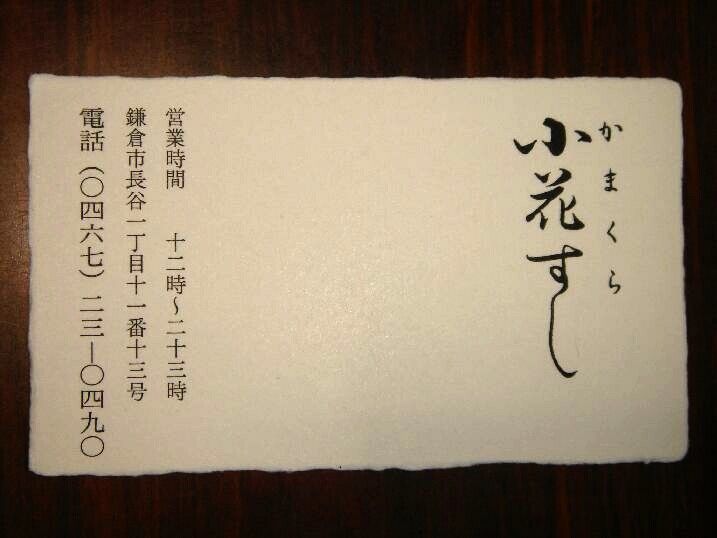 かまくら
小花すし
営業時間 十二時～二十三時
鎌倉市長谷一丁目十一番十三号
電話（〇四六七）二三―〇四九〇